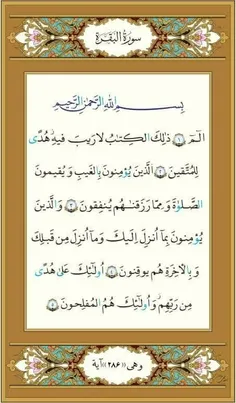 سورة البقرة
بسم الله الرحمن الرحيم
الٓمٓ ﴿١﴾ ذَٰلِكَ الْكِتَٰبُ لَا رَيْبَ فِيهِ هُدًى
لِّلْمُتَّقِينَ ﴿٢﴾ الَّذِينَ يُؤْمِنُونَ بِالْغَيْبِ وَيُقِيمُونَ
الصَّلَوٰةَ وَمِمَّا رَزَقْنَٰهُمْ يُنفِقُونَ ﴿٣﴾ وَالَّذِينَ
يُؤْمِنُونَ بِمَآ أُنزِلَ إِلَيْكَ وَمَآ أُنزِلَ مِن قَبْلِكَ
وَبِالْآخِرَةِ هُمْ يُوقِنُونَ ﴿٤﴾ أُولَٰٓئِكَ عَلَىٰ هُدًى
مِّن رَّبِّهِمْ وَأُولَٰٓئِكَ هُمُ الْمُفْلِحُونَ ﴿٥﴾
وهى «٢٨٦» آية